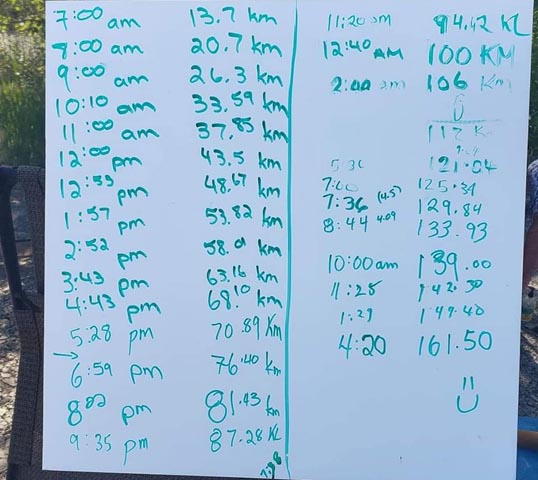 7:00 am 13.7 km
8:00 am 20.7 km
9:00 am 26.3 km
10:10 am 33.59 km
11:00 am 37.85 km
12:00 pm 43.5 km
12:53 pm 48.67 km
1:57 pm 53.82 km
2:52 pm 58.01 km
3:43 pm 63.16 km
4:43 pm 68.10 km
5:28 pm 70.89 Km
→
6:59 pm 76.40 Km
8:22 pm 81.43 km
9:35 pm 87.28 KL
7.38
11:20 pm 94.42 KL
12:40 AM 100 KM
2:00 am 106 Km
112 K
121.04
7:00 125.34
7:36 (4.5) 129.84
8:44 4.09 133.93
10:00 am 139.00
11:25 142.30
1:29 149.40
4:20 161.50